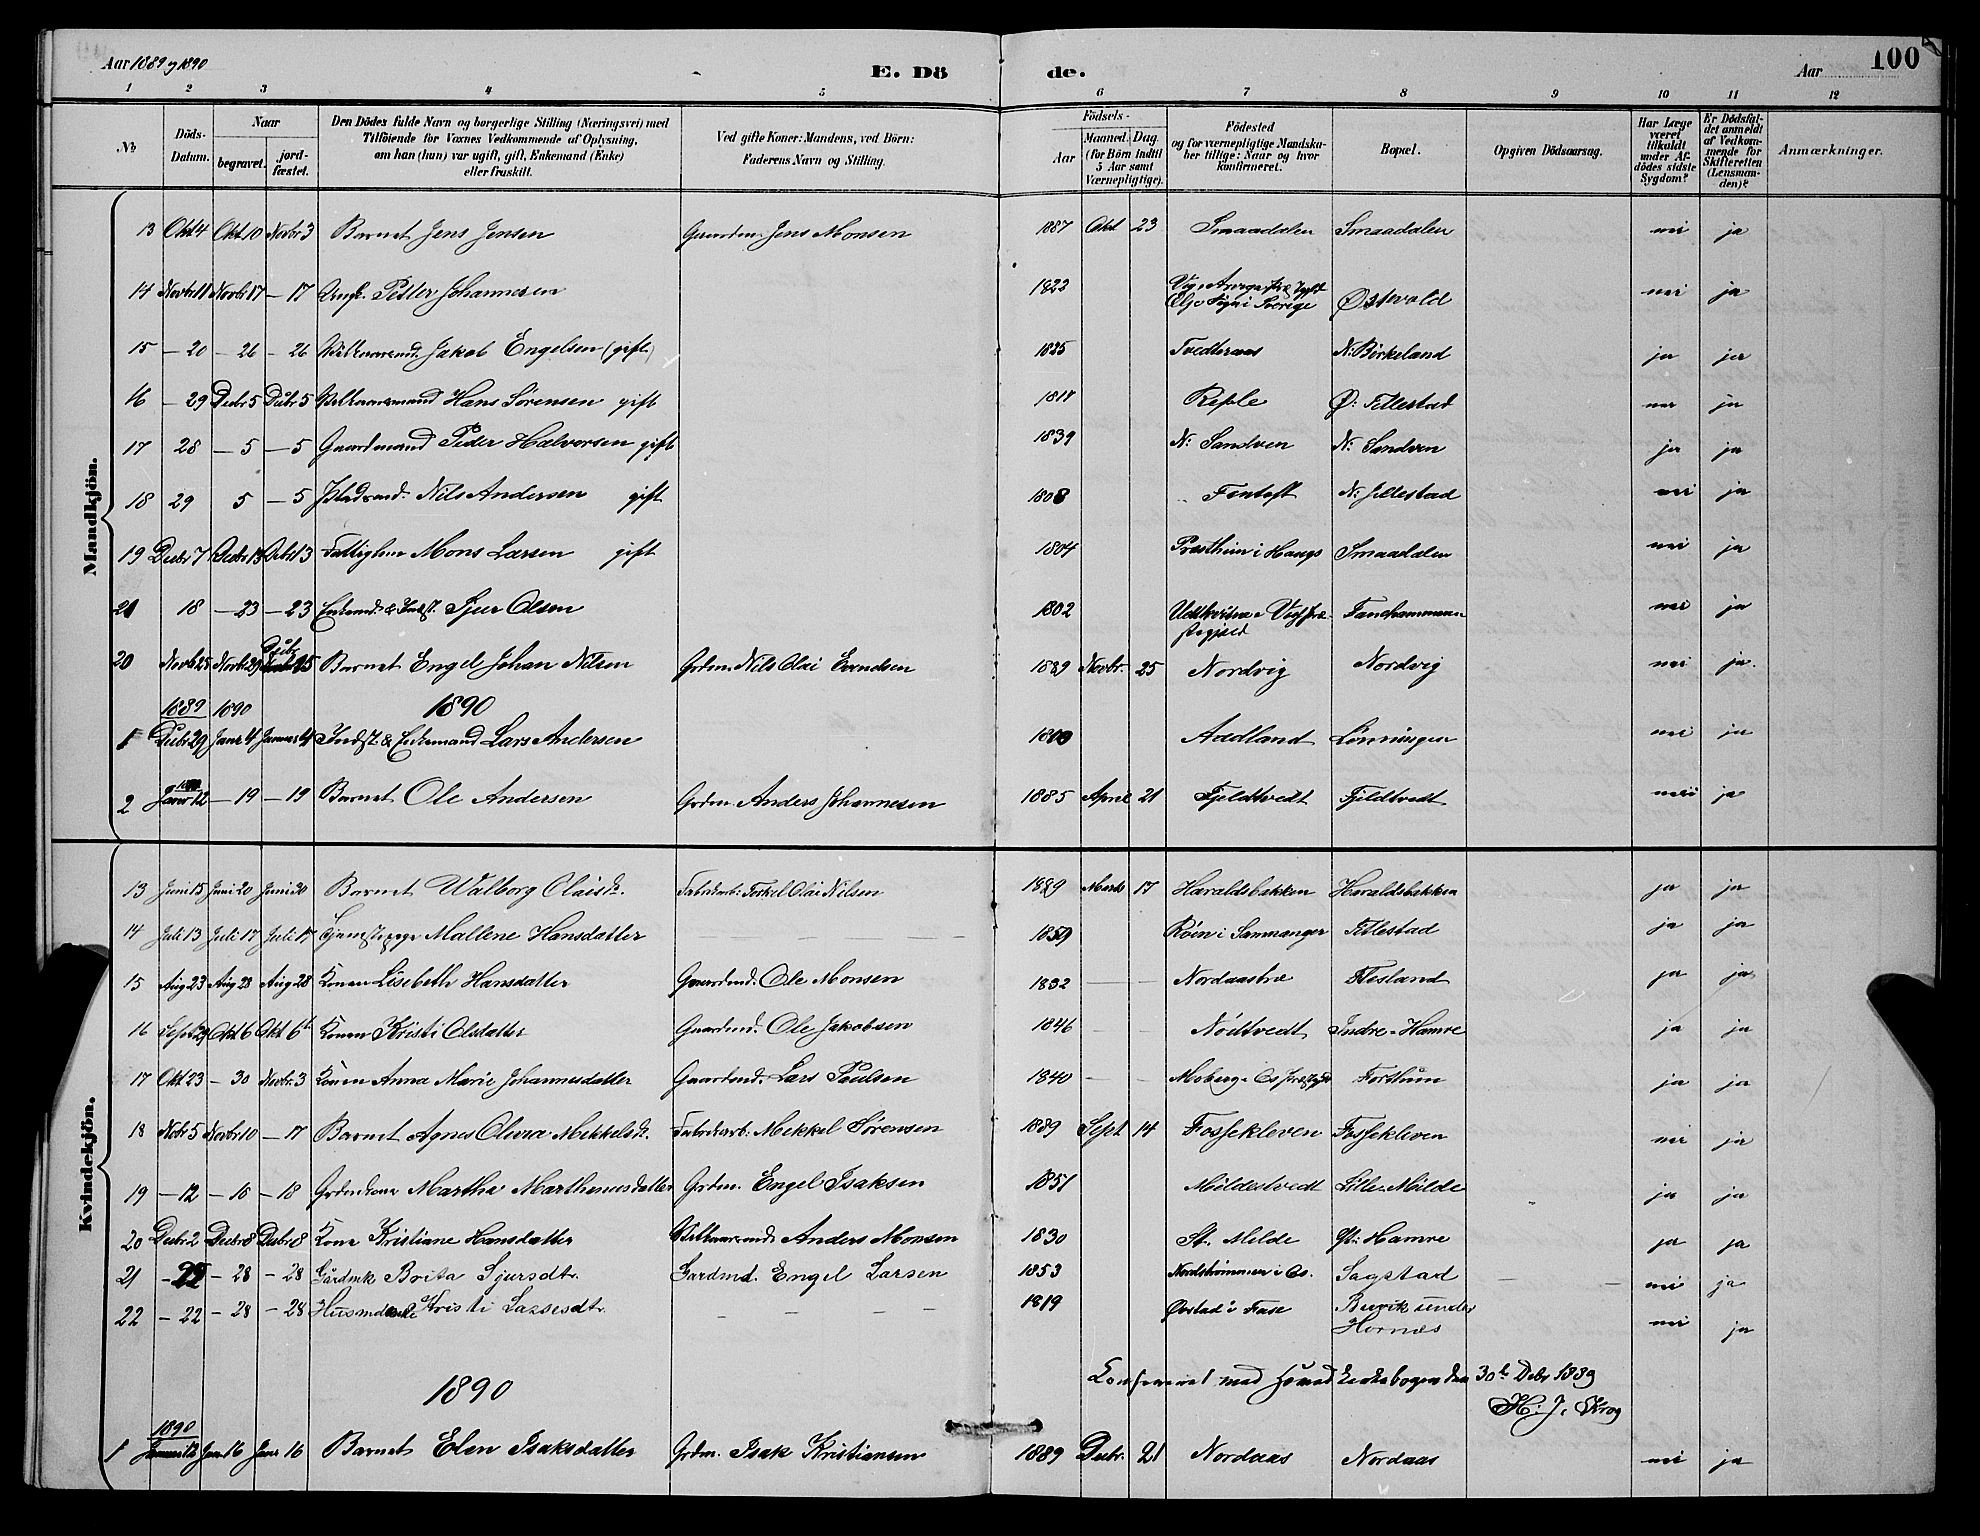 Aar 1889 og 1890
E. Döde.
Aar
100
1 2 3 4 5 6 7 8 9 10 11 12
№
Döds-Datum.
Naar
begravet.
jord-fæstet.
Den Dödes fulde Navn og borgerlige Stilling (Næringsvei) med
Tilföiende for Voxnes Vedkommende af Oplysning,
om han (hun) var ugift, gift, Enkemand (Enke)
eller fraskilt.
Ved gifte Koner: Mandens, ved Börn:
Faderens Navn og Stilling.
Födsels-
Aar
Maaned. Dag
(for Börn indtil
5 Aar samt
Værnepligtige).
Födested
og for værnepligtige Mandska-
ber tillige: Naar og hvor
konfirmeret.
Bopæl.
Opgiven Dödsaarsag.
Har Læge
været
tilkaldt
under Af-
dödes sidste
Sygdom?
Er Dödsfal-
det anmeldt
af Vedkom-
mende for
Skifteretten
(Lensman-
den)?
Anmærkninger.
Mandkjön.
13 Okt 4 Okt 10 Novbr 3 Barnet Jens Jensen Gaardm. Jens Monsen 1887 Okt 23 Smaadalen Smaadalen nei ja
14 Novbr 11 Novbr 17 – 17 Ungk. Petter Johannesen 1822 Sogn i Sverige Østevold nei ja
15 – 20 – 26 – 26 Jakob Engelsen (gift) 1825 Tvedteraas N: Birkeland ja ja
16 – 29 Decbr 5 Decbr 5 Hans Sörensen gift Ø: Titlestad nei ja
17 28 – 5 – 5 Gaardmand Peder Halvorsen gift 1839 N: Sandven N: Sandven ja ja
18 29 5 – 5 Nils Andersen gift 1808 Fentoft N: Titlestad nei ja
19 Decbr 7 Decbr 13 Decbr 13 Fattiglem Mons Larsen gift 1804 Prosthun i Haugs Smaadalen nei ja
21 18 – 23 – 23 Enkemd. & Indst. Sjur Olsen 1802 Fanehammeren nei ja
20 Novbr 25 Novbr 29 15 Barnet Engel Johan Nilsen Grdm. Nils Olai Evendsen 1889 Novbr. 25 Nordvig Nordvig nei ja
1889 1890 1890
1 Decbr 29 Janr 4 Januar 4 Indst. & Enkemand Lars Andersen 1810 Aadland Lönningen nei ja
2 Januar 12 – 19 – 19 Barnet Ole Andersen Grdm. Anders Johannesen 1885 April 21 Fjeldtvedt Fjeldtvedt nei ja
Kvindekjön.
13 Juni 15 Juni 20 Juni 30 Barnet Walborg Olaisdt. Fabrikarb: Torkel Olai Nilsen 1889 Marts 17 Haraldsbakken Haraldsbakken ja ja
14 Juli 13 Juli 17 Juli 17 Tjenestepige Mallene Hansdatter 1859 Röen i Samnanger Titlestad ja ja
15 Aug 23 Aug 28 Aug 28 Konen Lisebeth Hansdatter Gaardmd. Ole Monsen 1832 Nordaastræ Flesland ja ja
16 Sept 29 Okt 6 Okt 6 Konen Kristi Olsdatter Gaardmd. Ole Jakobsen 1846 Nödtvedt Indre-Hamre ja ja
17 Okt 23 – 30 Novbr. 3 Konen Anna Marie Johannesdatter Gaardmd. Lars Poulsen 1840 Moberg i Os Fortun ja ja
18 Nobr 5 Novbr 10 – 17 Barnet Agnes Olivia Mikkelsdt. Fabrikarb. Mikkel Sörensen 1889 Sept 14 Fossekleven Fossekleven nei ja
19 – 12 – 18 – 18 Grdmkone Martha Marthinusdatter Grdm. Engel Isaksen 1851 Mildestvedt Lille-Milde ja ja
20 Decbr 2 Decbr 8 Decbr 8 Kone Kristiane Hansdatter Anders Monsen 1830 St. Milde Yt: Hamre ja ja
21 – 28 – 28 Gårdmk Brita Sjursdtr. Gardmd. Engel Larsen 1853 Nordströmmen i Os. Sagstad nei ja
22 – 22 – 28 – 28 Kristi Lassesdtr. 1819 Övstad i Fuse Buvik under
Hornæs nei ja
Konfereret med Hovedkirkebogen den 30te Debr 1889
H: J. Krog
1890
1890
1 Januar 12 Jan 16 Janr 16 Barnet Elen Isaksdatter Grdm. Isak Kristiansen 1889 Decbr. 21 Nordaas Nordaas nei ja